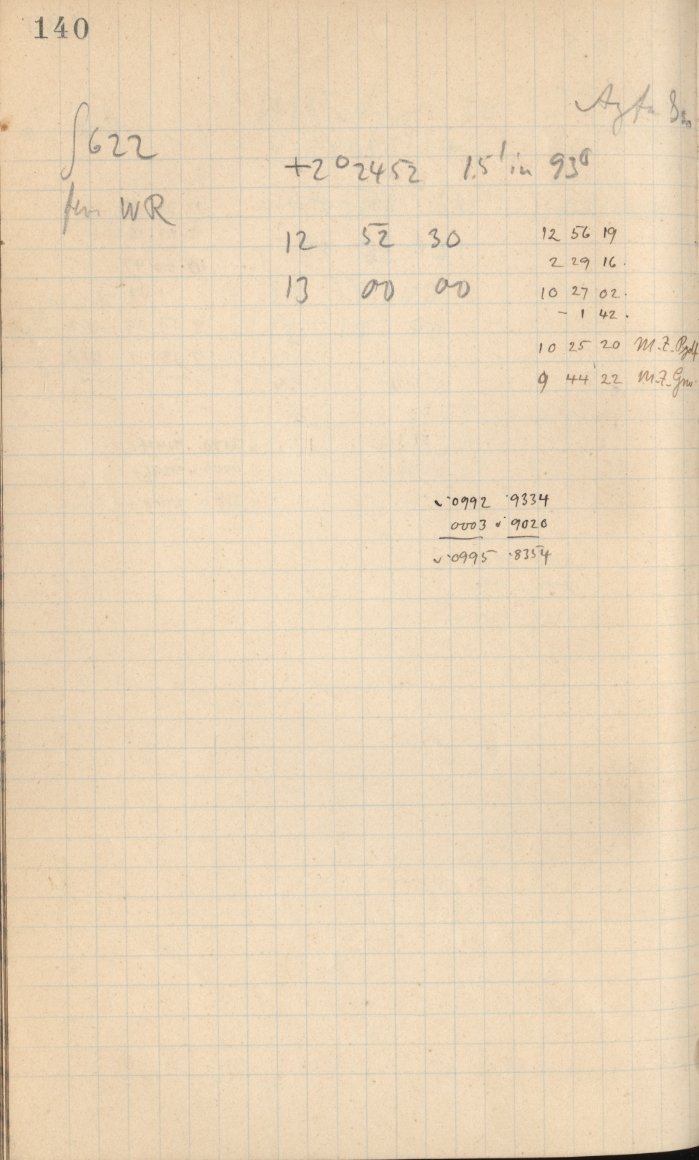 140
∫622
+2° 2452 1.5' in 93°
WR
12 52 30
13 00 00
12 56 19
2 29 16.
10 27 02.
- 1 42.
10 25 20 M.Z.
9 44 22 M.Z.
0992 9334
0003 9020
0995 8354